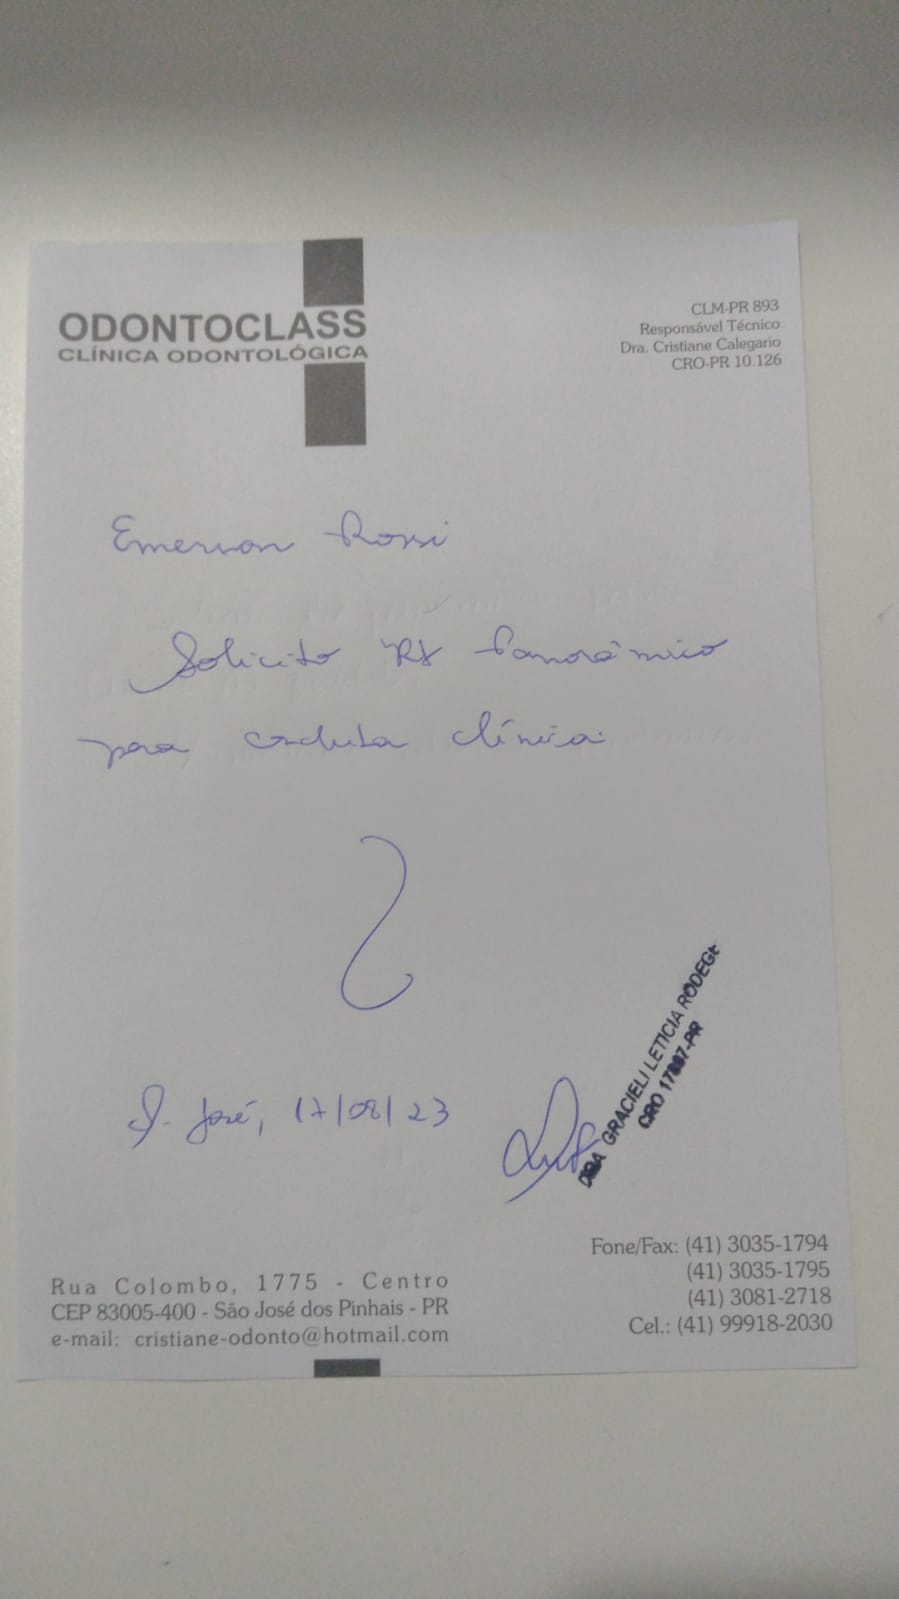 ODONTOCLASS
CLÍNICA ODONTOLÓGICA
CLM-PR 893
Responsável Técnico
Dra. Cristiane Calegario
CRO-PR 10.126
Emerson Rossi
Solicito RX Panorâmico
para conduta clínica.
S. José, 17/08/23
DRA GRACIELI LETICIA
CRO
Rua Colombo, 1775 - Centro
CEP 83005-400 - São José dos Pinhais - PR
e-mail: cristiane-odonto@hotmail.com
Fone/Fax: (41) 3035-1794
(41) 3035-1795
(41) 3081-2718
Cel.: (41) 99918-2030